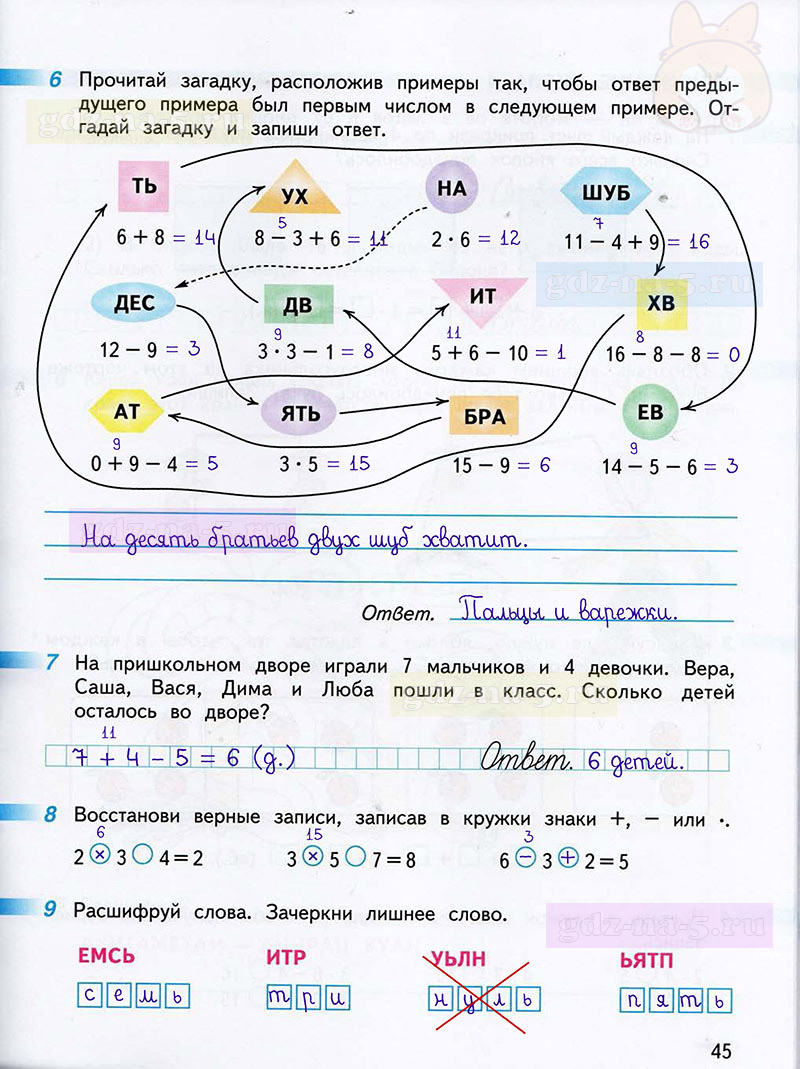 6 Прочитай загадку, расположив примеры так, чтобы ответ преды-
дущего примера был первым числом в следующем примере. От-
гадай загадку и запиши ответ.
gdz-na-5.ru
ТЬ УХ НА ШУБ
5 7
6 + 8 = 14 8 − 3 + 6 = 11 2 · 6 = 12 11 − 4 + 9 = 16
gdz-na-5.ru
ДЕС ДВ ИТ ХВ
9 11 8
12 − 9 = 3 3 · 3 − 1 = 8 5 + 6 − 10 = 1 16 − 8 − 8 = 0
АТ ЯТЬ БРА ЕВ
9 9
0 + 9 − 4 = 5 3 · 5 = 15 15 − 9 = 6 14 − 5 − 6 = 3
gdz-na-5.ru
На десять братьев двух шуб хватит.
Ответ. Пальцы и варежки.
7 На пришкольном дворе играли 7 мальчиков и 4 девочки. Вера,
Саша, Вася, Дима и Люба пошли в класс. Сколько детей
осталось во дворе?
gdz-na-5.ru
11
7 + 4 − 5 = 6 (д.) Ответ. 6 детей.
8 Восстанови верные записи, записав в кружки знаки +, − или ·.
6 15 3
2 × 3 ○ 4 = 2 3 × 5 ○ 7 = 8 6 − 3 + 2 = 5
9 Расшифруй слова. Зачеркни лишнее слово.
gdz-na-5.ru
ЕМСЬ ИТР УЬЛН ЬЯТП
семь три нуль пять
45